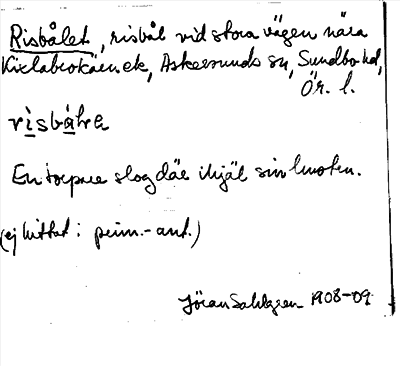 Risbålet, risbål vid stora vägen nära
Kixlabrokärnek, Askersunds sn, Sundbo hd,
Ör. l.
risbåla
En torpare slog där ihjäl sin hustru.
(ej hittat i prim.-ant.)
Jöran Sahlgren 1908-09